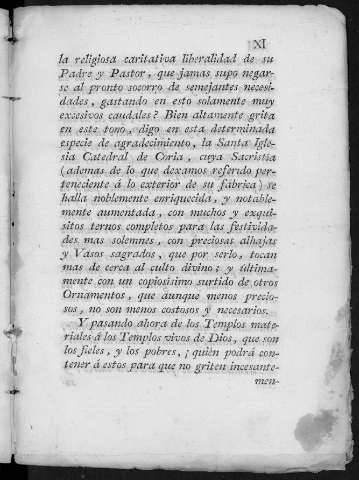 XI
la religiosa caritativa liberalidad de su
Padre y Pastor, que jamas supo negar-
se al pronto socorro de semejantes necesi-
dades, gastando en esto solamente muy
excesivos caudales? Bien altamente grita
en este tono, digo en esta determinada
especie de agradecimiento, la Santa Igle-
sia Catedral de Coria, cuya Sacristia
(ademas de lo que dexamos referido per-
teneciente á lo exterior de su fabrica) se
halla noblemente enriquecida, y notable-
mente aumentada, con muchos y exqui-
sitos ternos completos para las festivida-
des mas solemnes, con preciosas alhajas
y Vasos sagrados, que por serlo, tocan
mas de cerca al culto divino; y última-
mente con un copiosísimo surtido de otros
Ornamentos, que aunque menos precio-
sos, no son menos costosos y necesarios.
Y pasando ahora de los Templos mate-
riales á los Templos vivos de Dios, que son
los fieles, y los pobres, ¿quién podrá con-
tener á estos para que no griten incesante-
men-